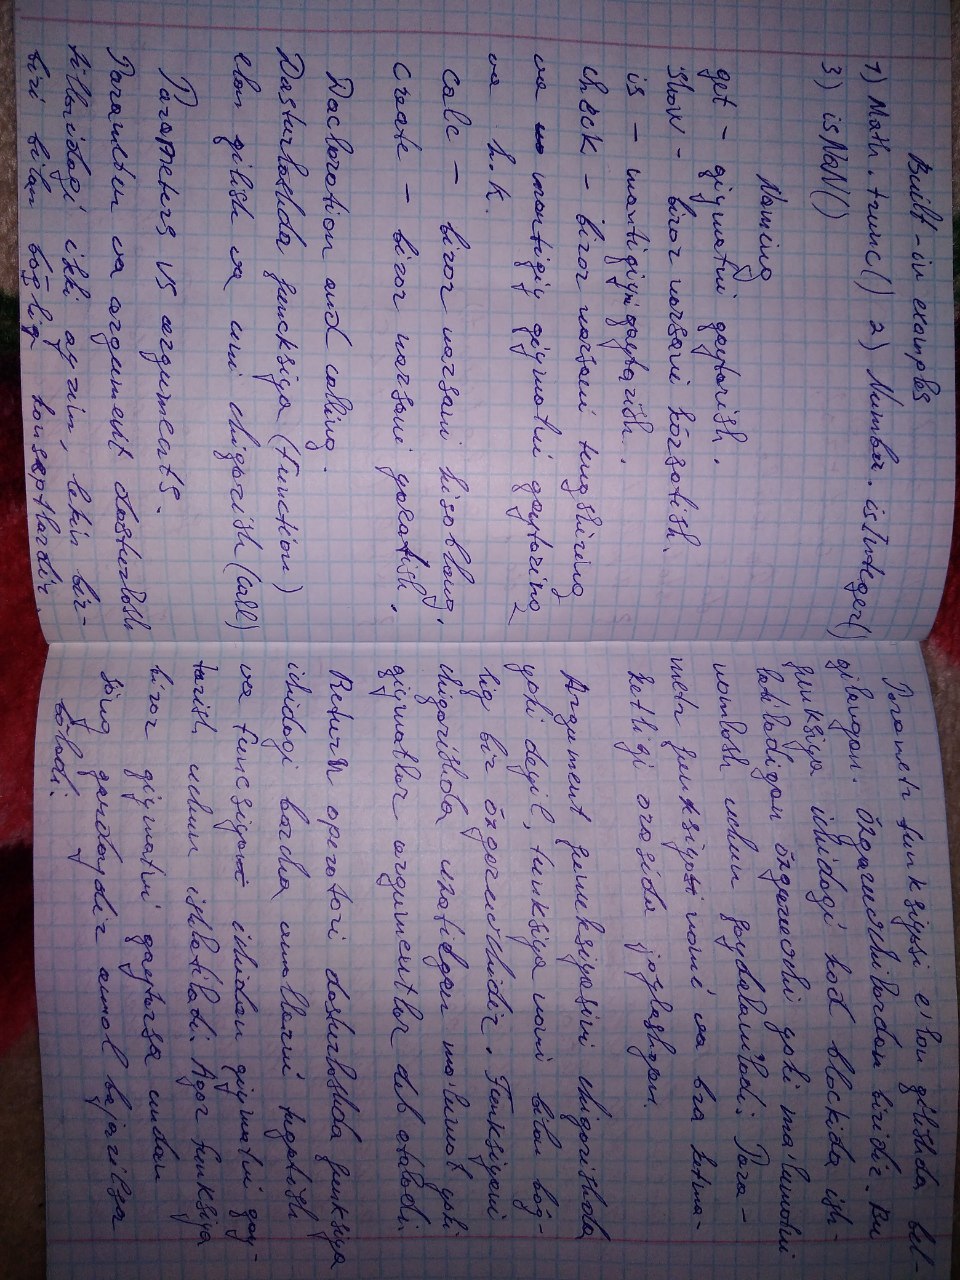 Built-in examples
1) Math.trunc() 2) Number.isInteger()
3) isNaN()
Naming
get - qiymatni qaytarish.
show - biror narsani ko'rsatish.
is - mantiqiyni qaytarish.
check - biror narsani tengshiring
va mantiqiy qiymatni qaytaring
va h.k.
calc - biror narsani hisoblang,
create - biror narsani yaratish.
Dacloration and calling.
Dasturlashda funcksiya (function)
elon qilish va uni chiqorish (call)
Parameters VS arguments.
Parameter va argument dasturlash
tilloridagi ikki ayrim, lekin bir-
biri bilan bog'liq konseptlardir.
Parametr funksiyasi e'lon qilishda bel-
gilangan o'zgaruvchilardan biridir. Bu
funksiya ichidagi kod blockida ish-
latiladigan o'zgaruvchi yoki ma'lumotni
uchun foydalaniladi. Para-
metr funksiyasi nomi va
ketligi orasida joylashgan.
Argument funksiyasini chiqorishda
yoki deyil, funksiya nomi bilan bog'-
liq bir o'zgaruvchidir. Funksiyani
chiqorishda uzatilgan ma'lumot yoki
qiymatlar argumentlar deb ataladi.
Return operatori dasturlashda funksiya
ichidagi barcha amallarni tugatish
va funcsiyani ichidan qiymatni qay-
tarish uchun ishlatiladi. Agar funksiya
biror qiymatni qaytarsa undan
so'ng qandaydir amal bajarilsa
bo'ladi.